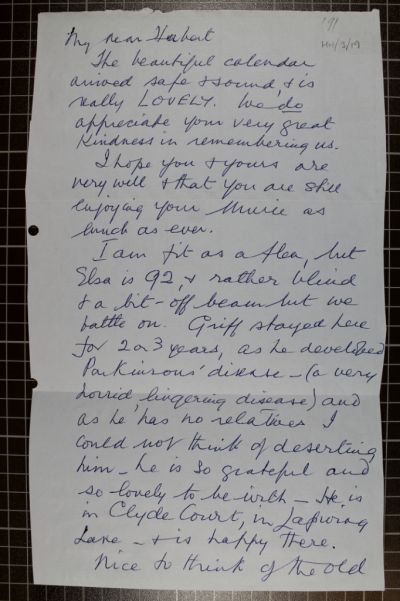 '91
HH/3/19
My dear Herbert
The beautiful calendar
arrived safe & sound, & is
really LOVELY. We do
appreciate your very great
kindness in remembering us.
I hope you & yours are
very well & that you are still
enjoying your music as
much as ever.
I am fit as a flea, but
Elsa is 92, & rather blind
& a bit-off beam but we
battle on. Griff stayed here
for 2 or 3 years, as he developed
Parkinsons' disease - (a very
horrid, lingering disease) and
as he has no relatives I
could not think of deserting
him - he is so grateful and
so lovely to be with - He is
in Clyde Court, in Lapwing
Lane - & is happy there.
Nice to think of the old